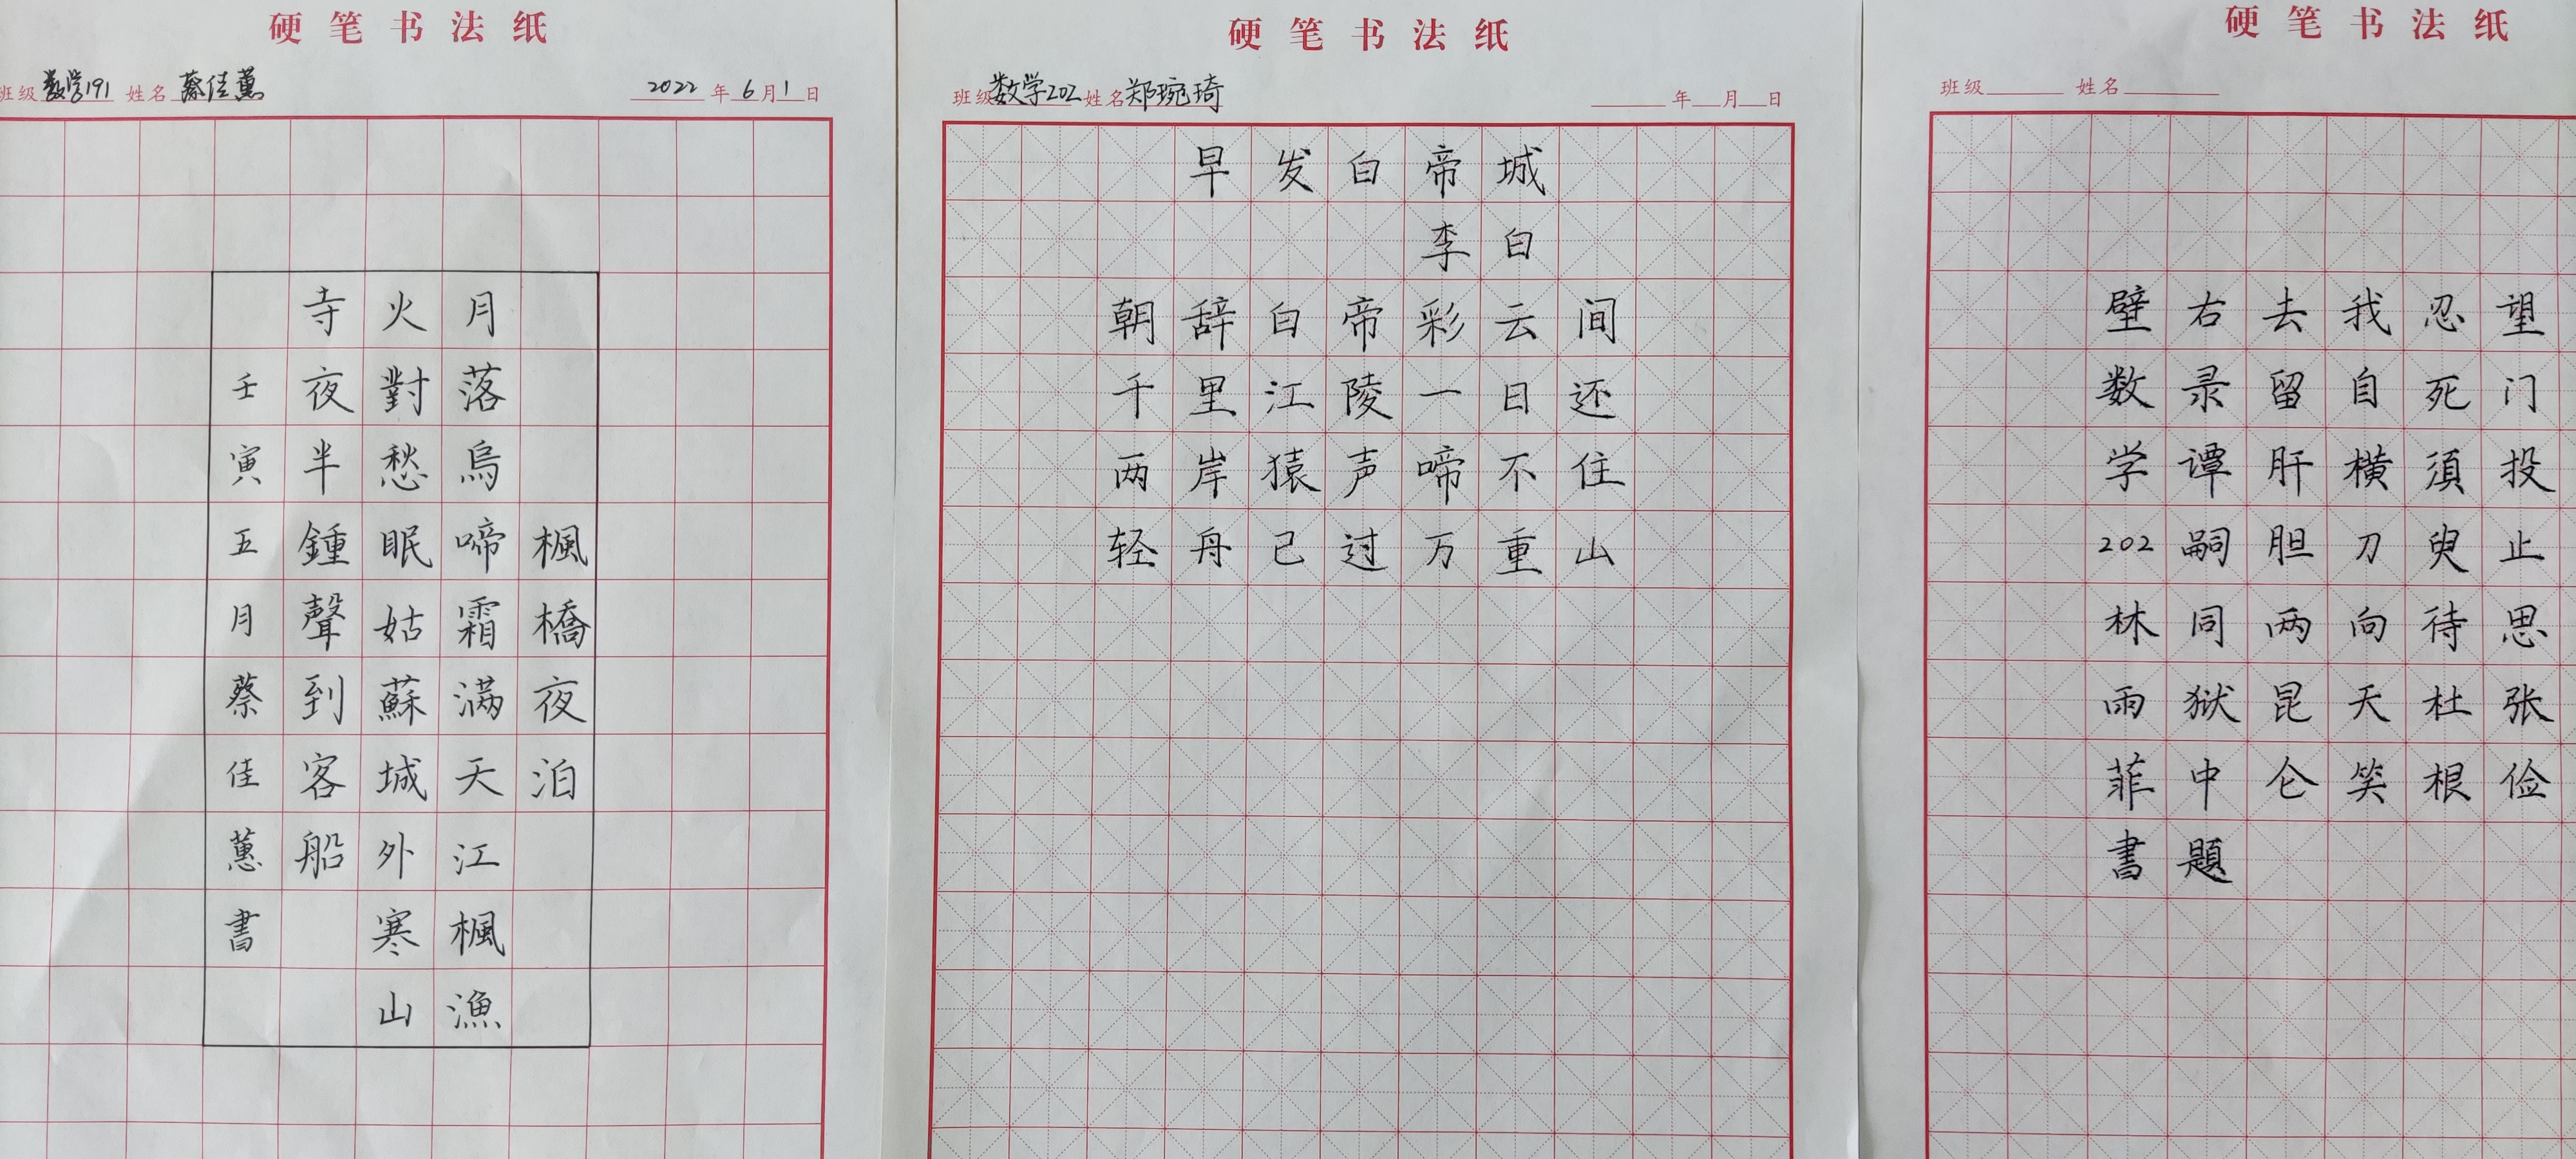 硬笔书法纸
班级 数学191 姓名 蔡佳蕙 2022年6月1日
楓橋夜泊
月落烏啼霜满天江楓漁
火對愁眠姑蘇城外寒山
寺夜半鍾聲到客船
壬寅五月蔡佳蕙書
硬笔书法纸
班级 数学202 姓名 郑琬琦 年 月 日
早发白帝城
李白
朝辞白帝彩云间
千里江陵一日还
两岸猿声啼不住
轻舟己过万重山
硬笔书法纸
班级 姓名
望门投止思张俭
忍死須臾待杜根
我自横刀向天笑
去留肝胆两昆仑
右录谭嗣同狱中題
壁数学202林雨菲書